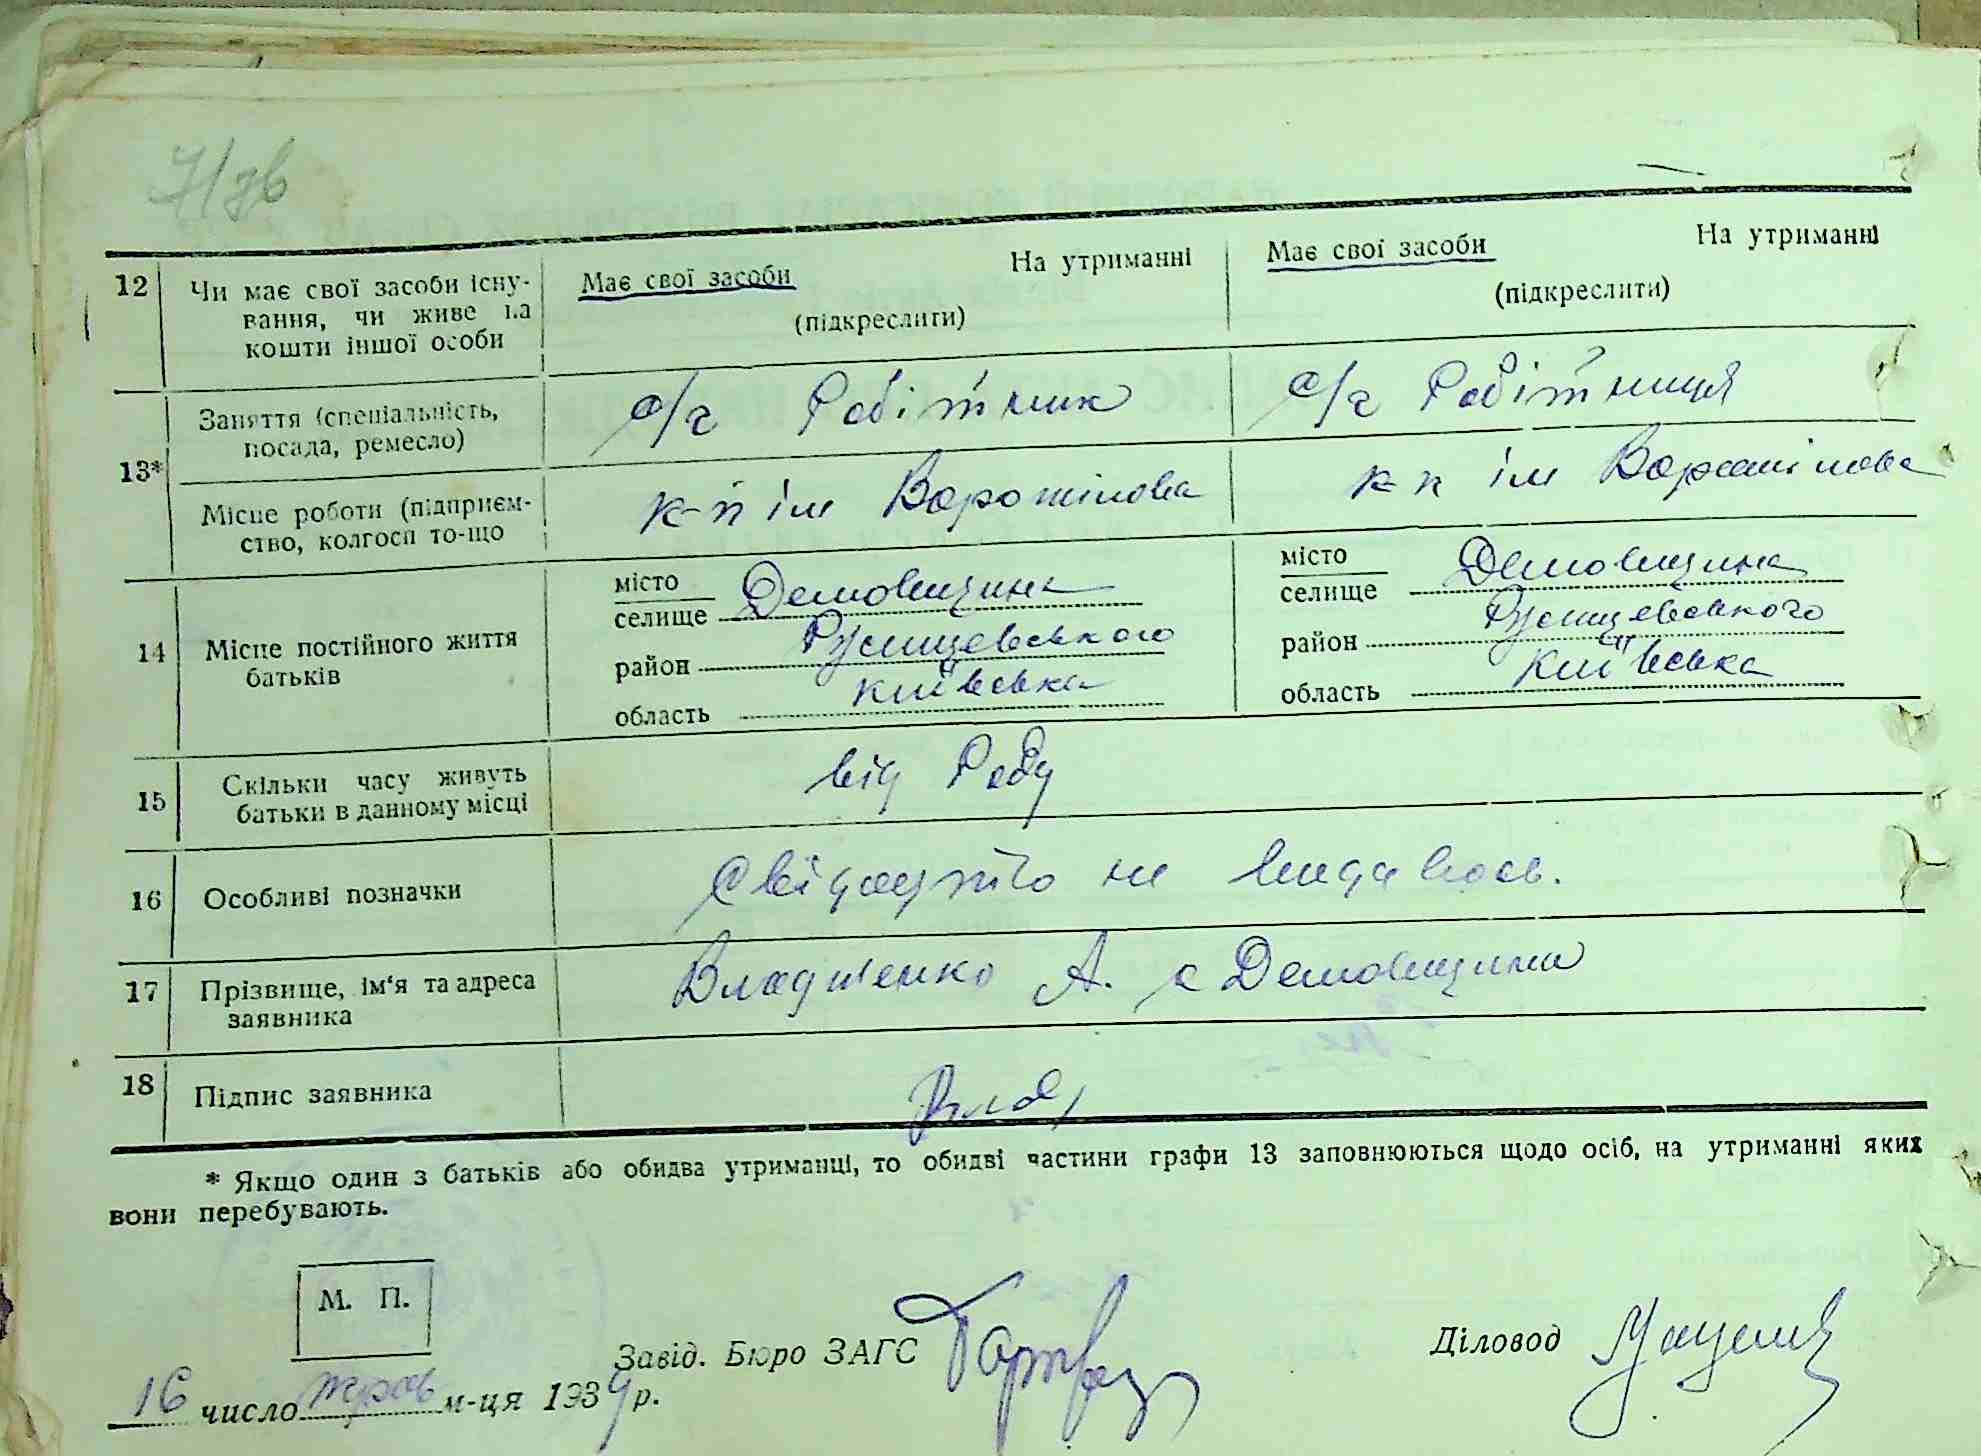 7/зв
12 Чи має свої засоби існу-
вання, чи живе на
кошти іншої особи
Має свої засоби На утриманні
(підкреслити)
Має свої засоби На утриманні
(підкреслити)
13*
Заняття (спеціальність,
посада, ремесло)
с/г Робітник
с/г Робітниця
Місце роботи (підприєм-
ство, колгосп то-що
к-п ім Ворошілова
к-п ім Ворошілова
14 Місце постійного життя
батьків
місто
селище Демовщина
район Ржищевського
область київська
місто
селище Демовщина
район Ржищевського
область київська
15 Скільки часу живуть
батьки в данному місці
від Роду
16 Особливі позначки
Свідоцтво не видавось.
17 Прізвище, ім‘я та адреса
заявника
А. с Демовщина
18 Підпис заявника
* Якщо один з батьків або обидва утриманці, то обидві частини графи 13 заповнюються щодо осіб, на утриманні яких
вони перебувають.
М. П.
Завід. Бюро ЗАГС
Діловод
16 число трав м-ця 1939 р.